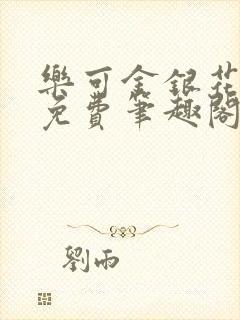 樂可金銀花
免費筆趣閣
劉雨